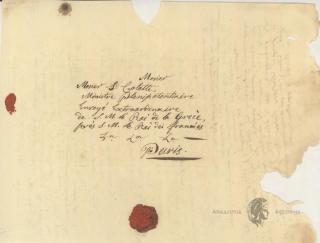 Monsier
Monsier D. Coletti
Ministre plenipotentiaire
Envoyé Extraordinaire
de S. M. le Roi de la Grèce,
près S. M. le Roi des français
à Paris.
ΑΚΑΔΗΜΙΑ ΑΘΗΝΩΝ